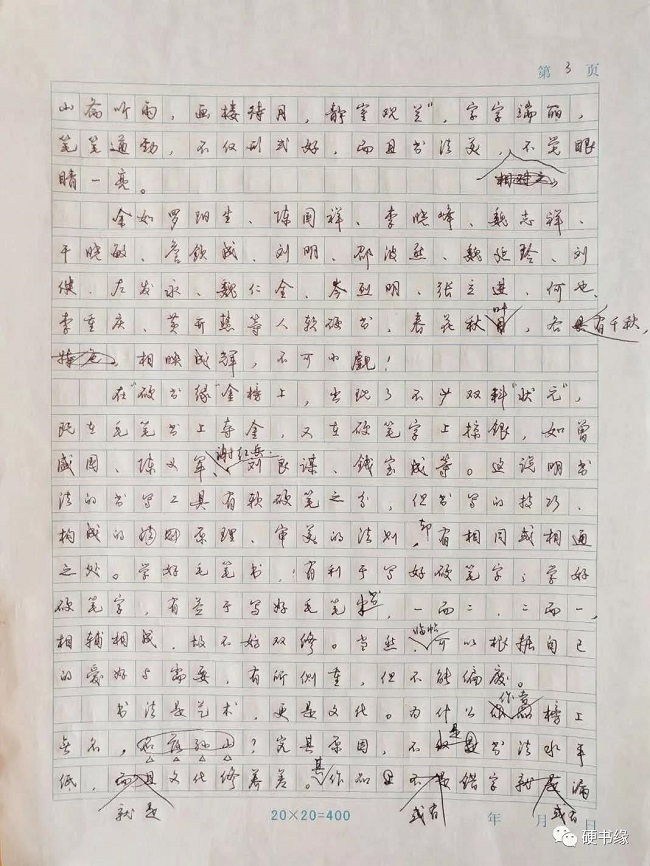 第 3 页
山斋听雨，画楼待月，静室观兰"，字字端丽，
笔笔遒劲，不仅形式好，而且书法美，不觉眼
睛一亮。
余如罗阳生、陈国祥、李晓峰、魏志祥、
于晓敏、詹锁成、刘明、邵波  、魏  玲、刘
健、左发永、魏仁金、岑烈明、张立进、何也、
李重庆、黄  慧等人软硬书，春花秋月，各具有千秋，
特色。相映成辉，不可小觑！
在"硬书缘"金榜上，出现了不少双料"状元"，
既在毛笔书上夺金，又在硬笔字上掠银，如曾
盛国、陈义军、谢红兵、刘良谋、钱宝成等。这说明书
法的书写工具有软硬笔之分，但书写的技巧、
构成的  原理、审美的法则，却有相同或相通
之处。学好毛笔书，有利于写好硬笔字；学好
硬笔字，有益于写好毛笔书，一而二，二而一，
相辅相成，故不妨双修。当然，临帖可以根据自己
的爱好与需要，有所侧重，但不能偏废。
书法是艺术，更是文化。为什么  作者榜上
无名，名落孙山？究其原因，不是书法水平
低，就是文化修养差。其作品  不  或有错字就是或有漏
20×20=400
年 月 日
硬书缘